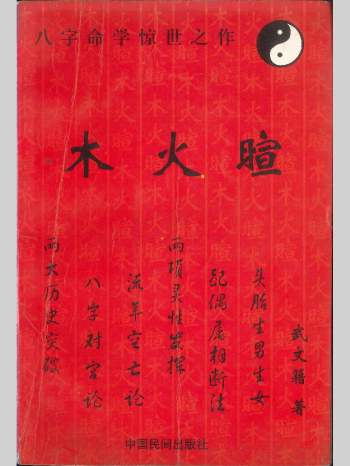 八字命学惊世之作
木火暄
武文 著
头胎生男生女
配偶属相断法
两项灵性发挥
流年空亡论
八字对宫论
两大历史突破
中国民间出版社